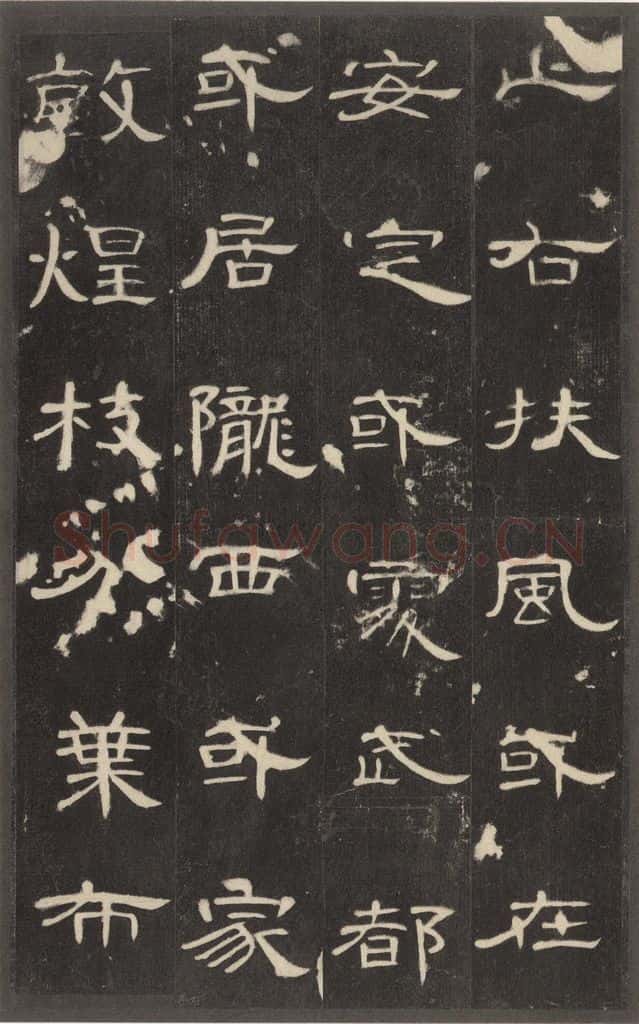 止右扶風或在
安定或處武都
或居隴西或家
敦煌枝分葉布
Shufawang.CN